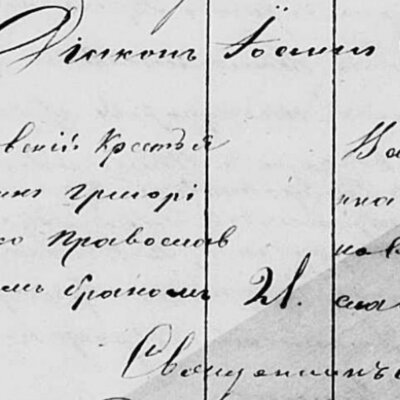 Діаконъ Іоаннъ
вскій Крестья
инъ Григорі
ко Православ
мъ бракомъ 21.
Священникъ